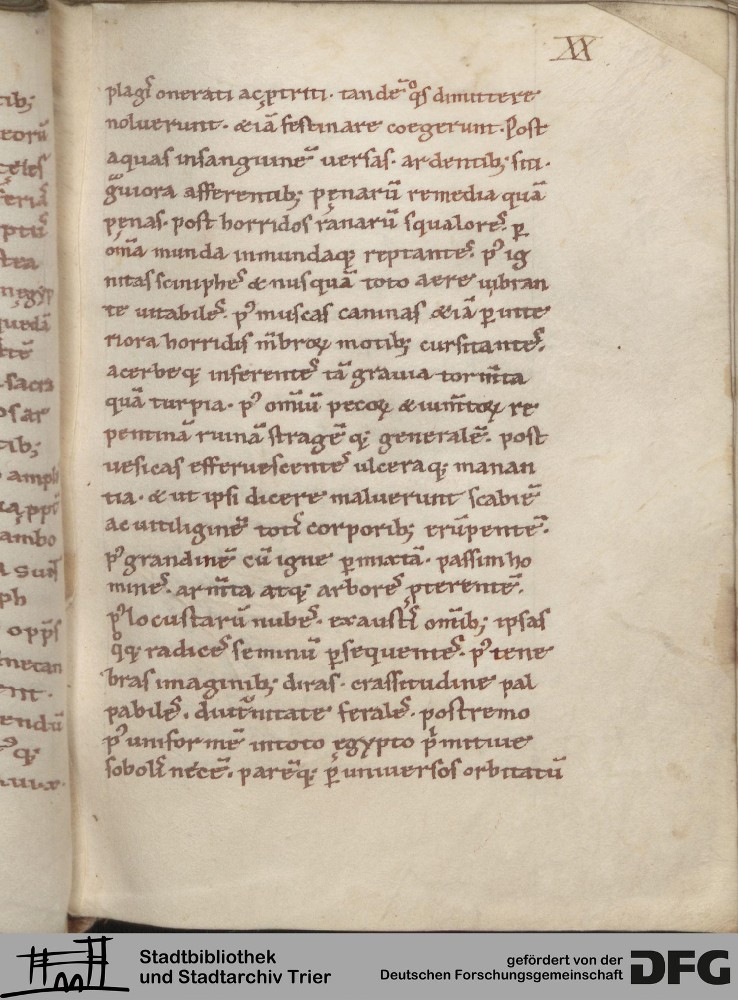 XX
plagꝭ onerati ac ꝓtriti. tandē qͦs dimittere
noluerunt. & iā festinare coegerunt. Post
aquas in sanguinē uersas. ardentib; siti.
gͣuiora afferentib; pęnarū remedia quā
pęnas. post horridos ranarū squalores. ꝑ
om̄a munda inmundaq; reptantes. pꝰ ig
nitas sciniphes & nusquā toto aere uibran
te uitabiles. pꝰ muscas caninas & iā ꝑ inte
riora horridis m̄broꝝ motib; cursitantes.
acerbeq; inferentes tā grauia torm̄ta
quā turpia. pꝰ om̄iū pecoꝝ & ium̄toꝝ re
pentinā ruinā stragē q; generalē. post
uesicas efferuescentes ulceraq; manan
tia. & ut ipsi dicere maluerunt scabiē
ac uitiliginē totiꝰ corporib; erūpentē.
pꝰ grandinē cū igne ꝑmixtā. passim ho
mines. arm̄ta atq; arbores ꝓterentē.
pꝰ locustarū nubes. exaustꝭ om̄ib; ipsas
qͦq; radices seminū ꝑsequentes. pꝰ tene
bras imaginib; diras. crassitudine pal
pabiles. diut̄nitate ferales. postremo
pꝰ uniformē in toto ęgypto p̄mitiuę
sobolꝭ necē. parēq; ꝑ uniuersos orbitatū
tib;
eorū
feriā
ptū
stea
negyp
quedā
sacra
osar
tib;
ampli
ambo
ph
opp̄s
necan
ent.
endū
q;
Stadtbibliothek
und Stadtarchiv Trier
gefördert von der
Deutschen Forschungsgemeinschaft
DFG